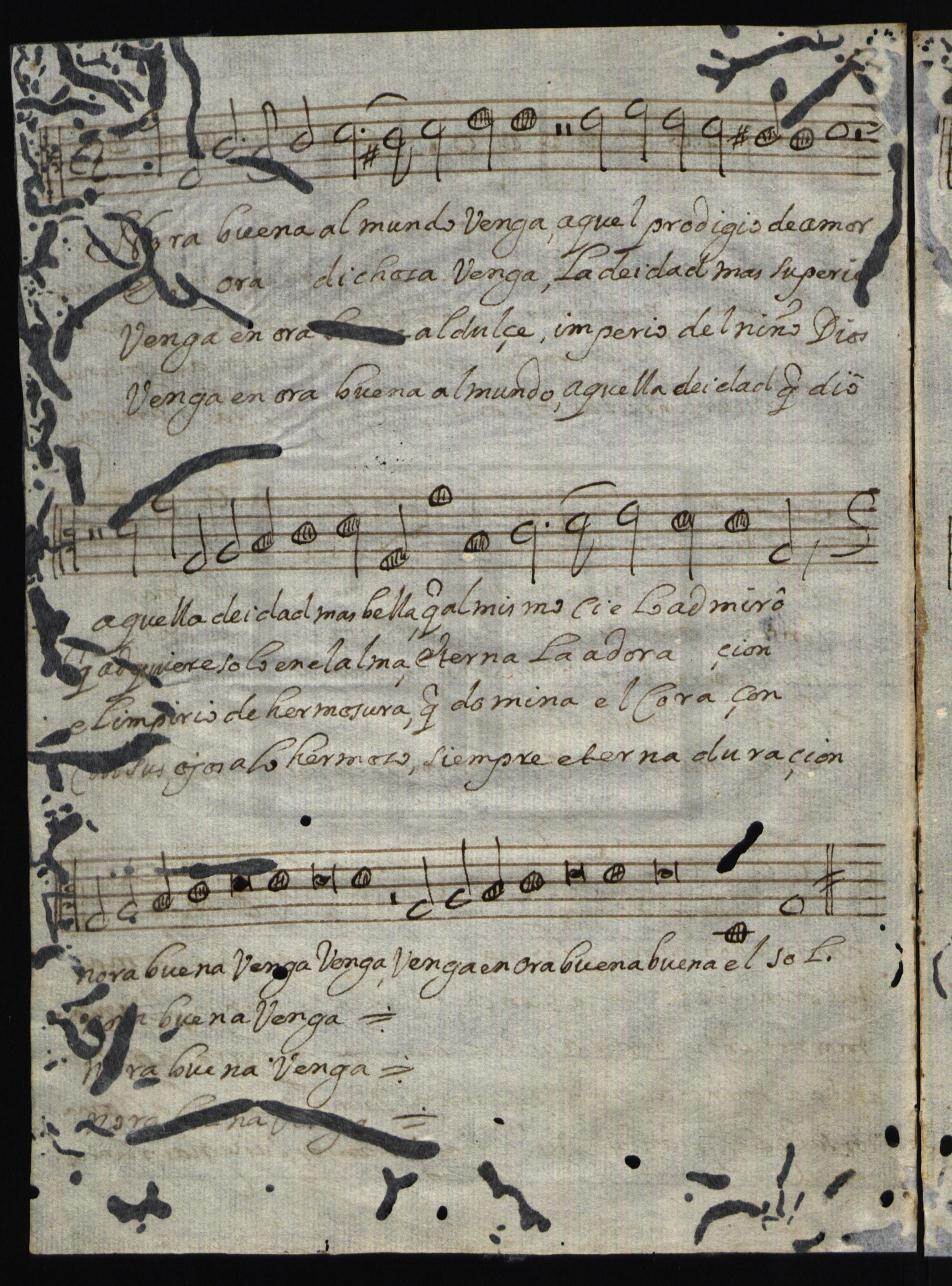 Nora buena al mundo Venga, aquel prodigio de amor
ora dichosa Venga, La deidad mas superio
Venga en ora al dulçe, imperio del niño Dios
Venga en ora buena al mundo, aquella deidad q̃ dió
aquella deidad mas bella, q̃ al mismo Cielo admiró
q̃ adquiere solo en el alma, eterna La adora çion
el impirio de hermosura, q̃ domina el Cora çon
Con sus ojos a lo hermoso, siempre eterna duraçion
nora buena Venga Venga, Venga en ora buena buena el sol.
nora buena Venga =
nora buena Venga =
nora buena Venga =